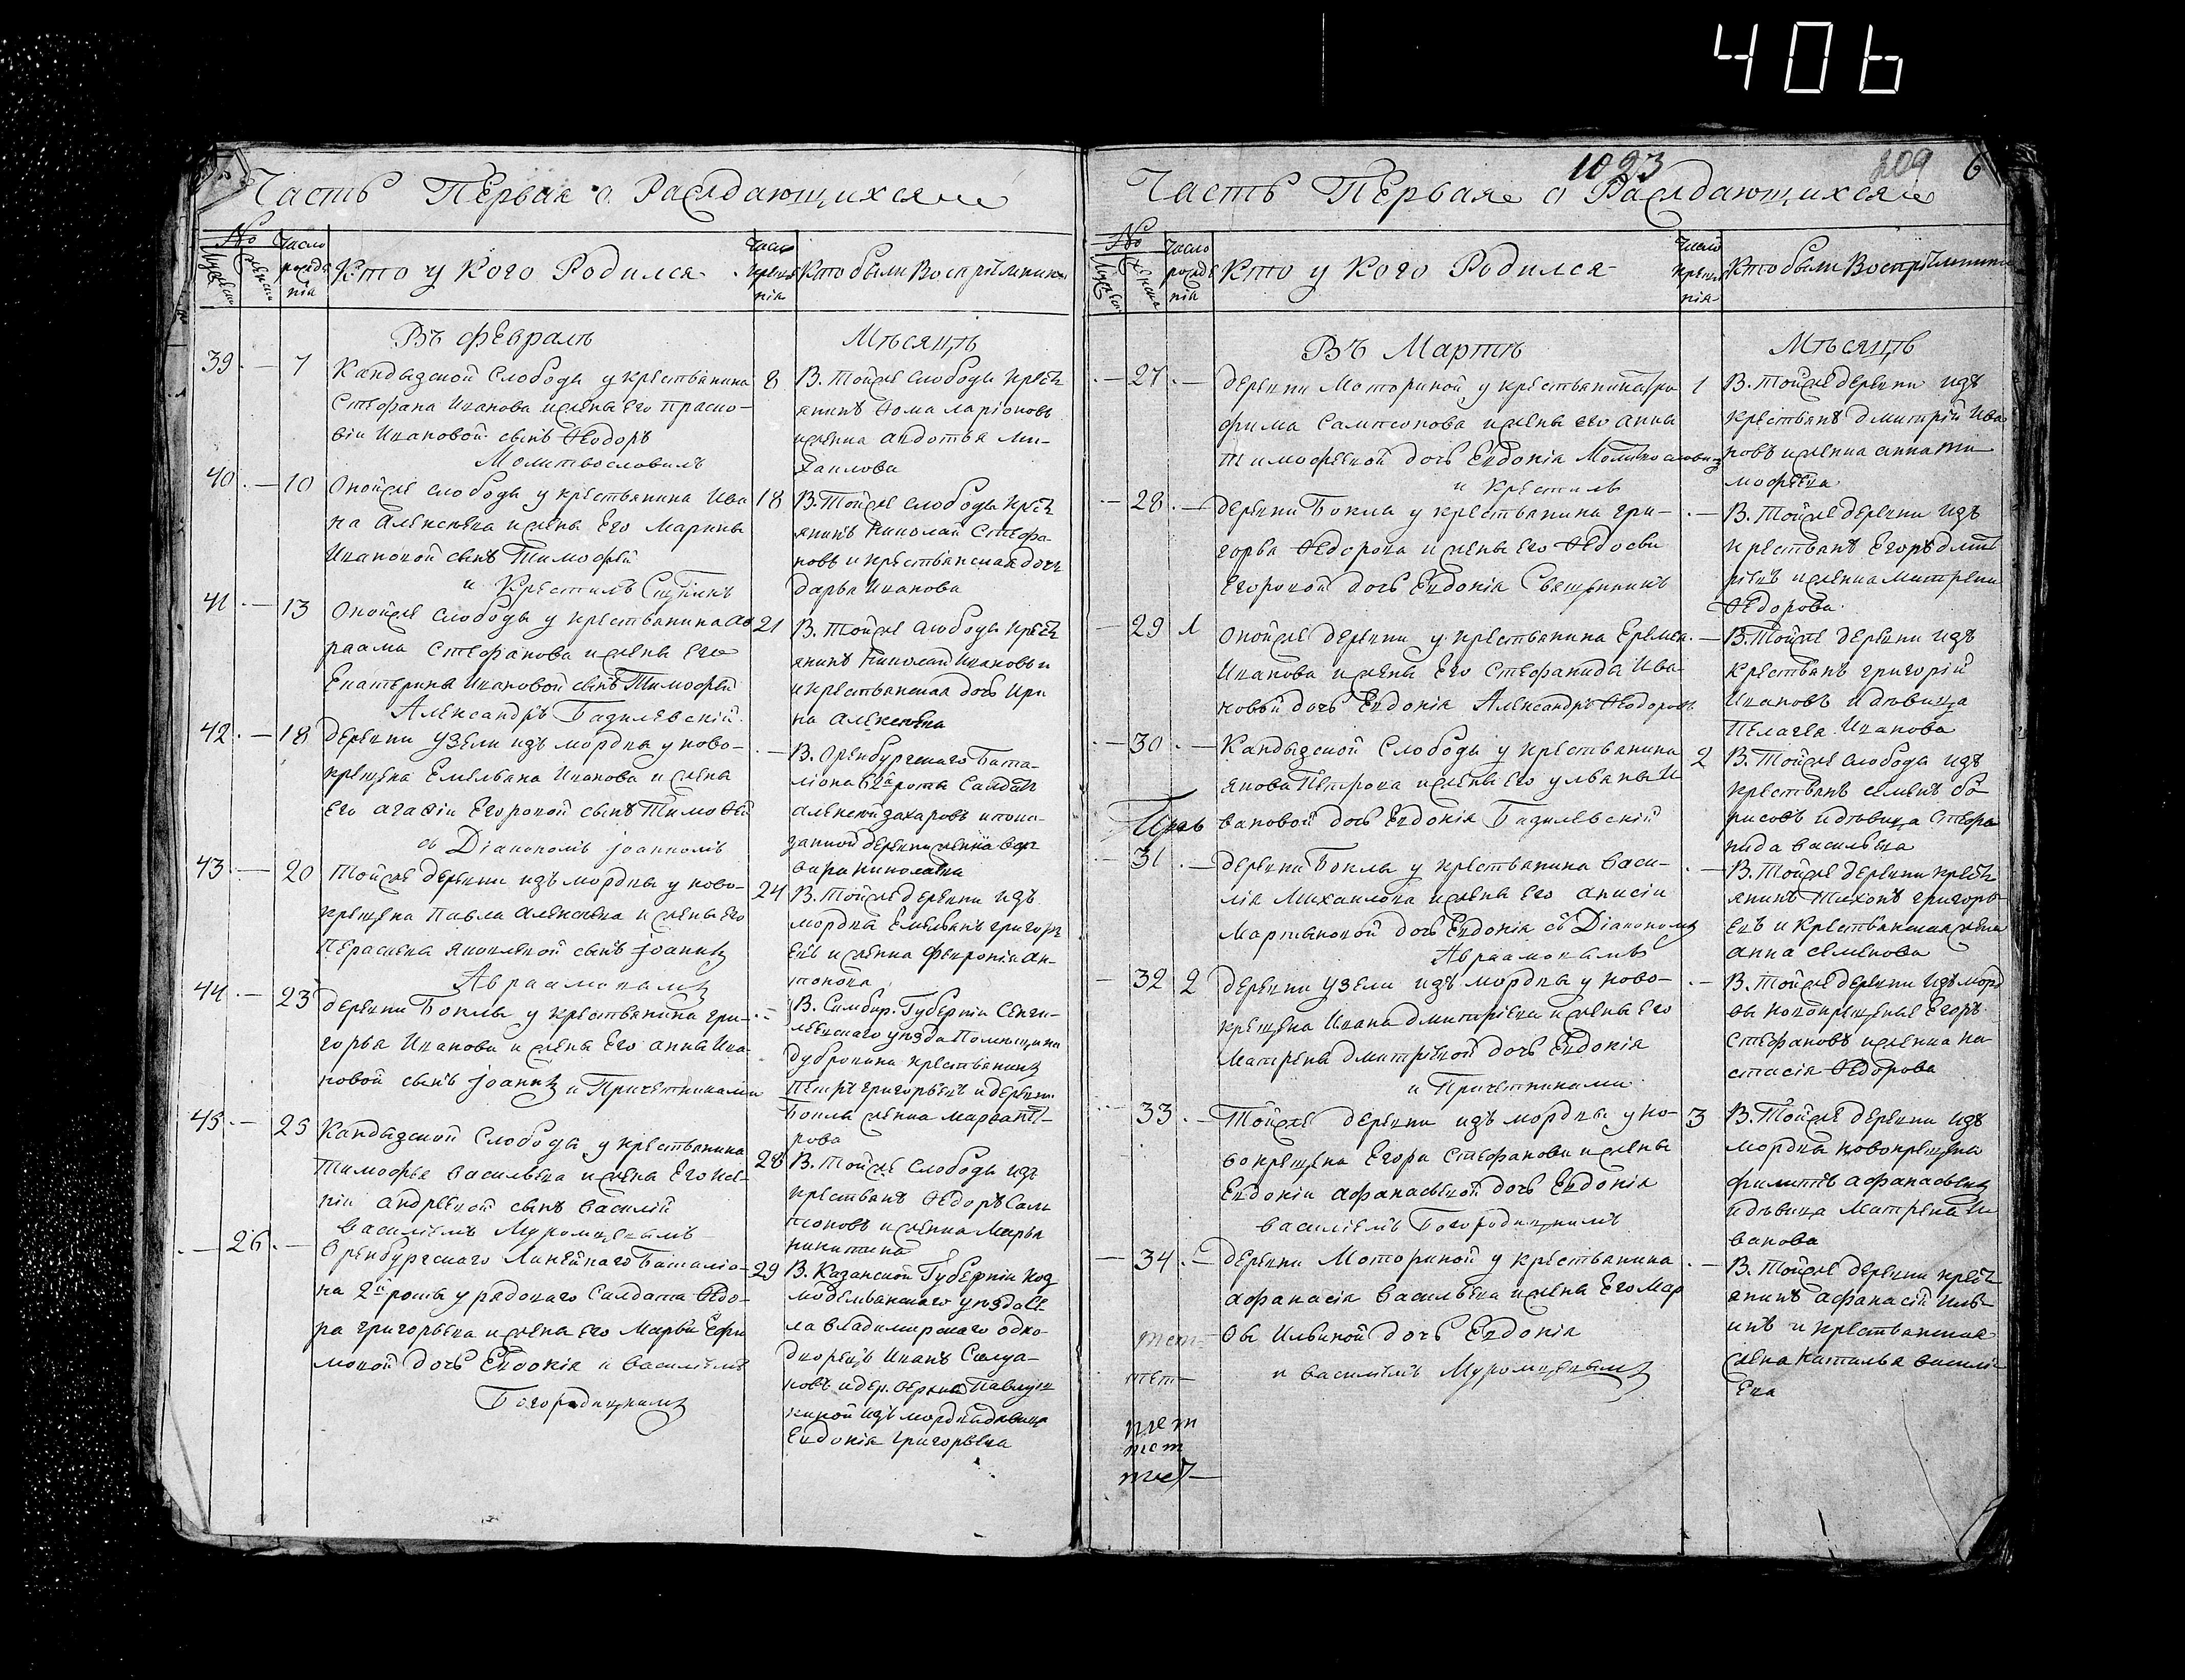 406
Часть Первая о Раждающихся
№
Число рожде нія
Кто у Кого Родился
Число креще нія
Кто были Воспріемники
Въ февралѣ
Мѣсяцѣ
39 — 7
Кандызской Слободы у крестьянина
Стефана Иванова и жены Его Праско-
віи Ивановой сынъ Ѳеодоръ
Молитвословилъ
8
В. Тойже слободы крест
янинъ Ѳома Ларіоновъ
и женка авдотья Ми-
хаилова
40 — 10
Оной же слободы у крестьянина Ива
на Алексѣева и жены Его Марины
Ивановой сынъ Тимофей
и Крестилъ
18
В. Тойже слободы крест
янинъ Николай Стефа-
новъ и крестьянская дочь
Дарья Иванова
41 — 13
Оной же Слободы у крестьянина Ав
раама Стефанова и жены Его
Екатерины Ивановой сынъ Тимофей
Александръ Базилевскій
21
В. Тойже слободы крест
янинъ Николай Ивановъ и
и крестьянская дочь Ири
на Алексѣева
42 — 18
деревни Узели изъ мордвы у ново-
крещена Емельяна Иванова и жены
Его агафіи Егоровой сынъ Тимофей
съ Діакономъ Іоанномъ
—
В. Оренбургскаго Бата-
ліона 2й роты Салдатъ
Алексей Захаровъ и пока-
занной деревни женка вар
вара николаева
43 — 20
Тойже деревни изъ мордвы у ново-
крещена Павла Алексѣева и жены его
Перасковьи Яковлевой сынъ Іоаннъ
Авраамовымъ
24
В. Тойже деревни изъ
мордвы Емельянъ григорь
евъ и женка Февронія ан-
тонова
44 — 23
деревни Боклы у крестьянина гри-
горья Иванова и жены Его анны Ива-
новой сынъ Іоаннъ и Причетниками
—
В. Симбир. Губерніи Сенги-
леевскаго уѣзда Помещика
Дубровина крестьянинъ
Петръ григорьевъ и деревни
Боклы женка марфа Пет-
рова
45 — 25
Кандызской Слободы у крестьянина
Тимофея васильева и жены Его Ксе-
ніи андреевой сынъ василій
василіемъ Муромцевымъ
28
В. Тойже Слободы изъ
крестьянъ Ѳедоръ Сам
псоновъ и женка Марья
никитина
— 26 —
Оренбургскаго Линейнаго Баталіо-
на 2й роты у рядоваго Салдата Ѳедо-
ра григорьева и жены его Марьи Ефи
мовой дочь Евдокія и василіемъ
Богородицкимъ
29
В. Казанской Губерніи Коз
модемьянскаго уѣзда се
ла владимирскаго одно-
дворецъ Иванъ Силуа-
новъ и дер. Павлуш
киной изъ мордвы девица
Евдокія григорьева
1023
209
6
Часть Первая о Раждающихся
№
Число рожде нія
Кто у Кого Родился
Число креще нія
Кто были Воспріемники
Въ Мартѣ
Мѣсяцѣ
— 27 —
деревни Моториной у крестьянина Тро
фима Сампсонова и жены его анны
Тимофеевой дочь Евдокія Молитвословилъ
и Крестилъ
1
В. Тойже деревни изъ
крестьянъ Дмитрій Ива
новъ и женка анна Ти-
мофеева
— 28 —
деревни Боклы у крестьянина гри-
горья Ѳедорова и жены Его Ѳедосьи
Егоровой дочь Евдокія Священникъ
—
В. Тойже деревни изъ
крестьянъ Егоръ Дмит
ріевъ и женка Матрена
Ѳедорова
— 29 1
Оной же деревни у крестьянина Еремея
Иванова и жены Его Стефаниды Ива-
новой дочь Евдокія Александръ Ѳеодоровъ
—
В. Тойже деревни изъ
крестьянъ григорій
Ивановъ и дѣвица
Пелагея Иванова
— 30 —
Кандызской Слободы у крестьянина
Якова Петрова и жены Его Ульяны И-
вановой дочь Евдокія Базилевскій
2
В. Тойже слободы изъ
крестьянъ семенъ бо-
рисовъ и дѣвица Стефа
нида васильева
— 31 —
деревни Боклы у крестьянина васи-
лія Михаилова и жены Его анисіи
Мартыновой дочь Евдокія съ Діакономъ
Авраамовымъ
—
В. Тойже деревни крест
янинъ Тихонъ григорь-
евъ и Крестьянская жена
анна семенова
— 32 2
деревни Узели изъ мордвы у ново-
крещена Ивана Дмитріева и жены Его
Матрены Дмитріевой дочь Евдокія
и Причетниками
—
В. Тойже деревни изъ морд
вы новокрещеные Егоръ
Стефановъ и женка На
стасія Ѳедорова
— 33 —
Тойже деревни изъ мордвы у но-
вокрещена Егора Стефанова и жены
Евдокіи афанасьевой дочь Евдокія
василіемъ Богородицкимъ
3
В. Тойже деревни изъ
мордвы новокрещены
филипъ афанасьевъ
и дѣвица Матрена И-
ванова
— 34 —
деревни Моториной у крестьянина
афанасія васильева и жены Его Мар
ѳы Ильиной дочь Евдокія
и василіемъ Муромцевымъ
—
В. Тойже деревни крест
янинъ афанасій Иль-
инъ и крестьянская
жена наталья василь-
ева